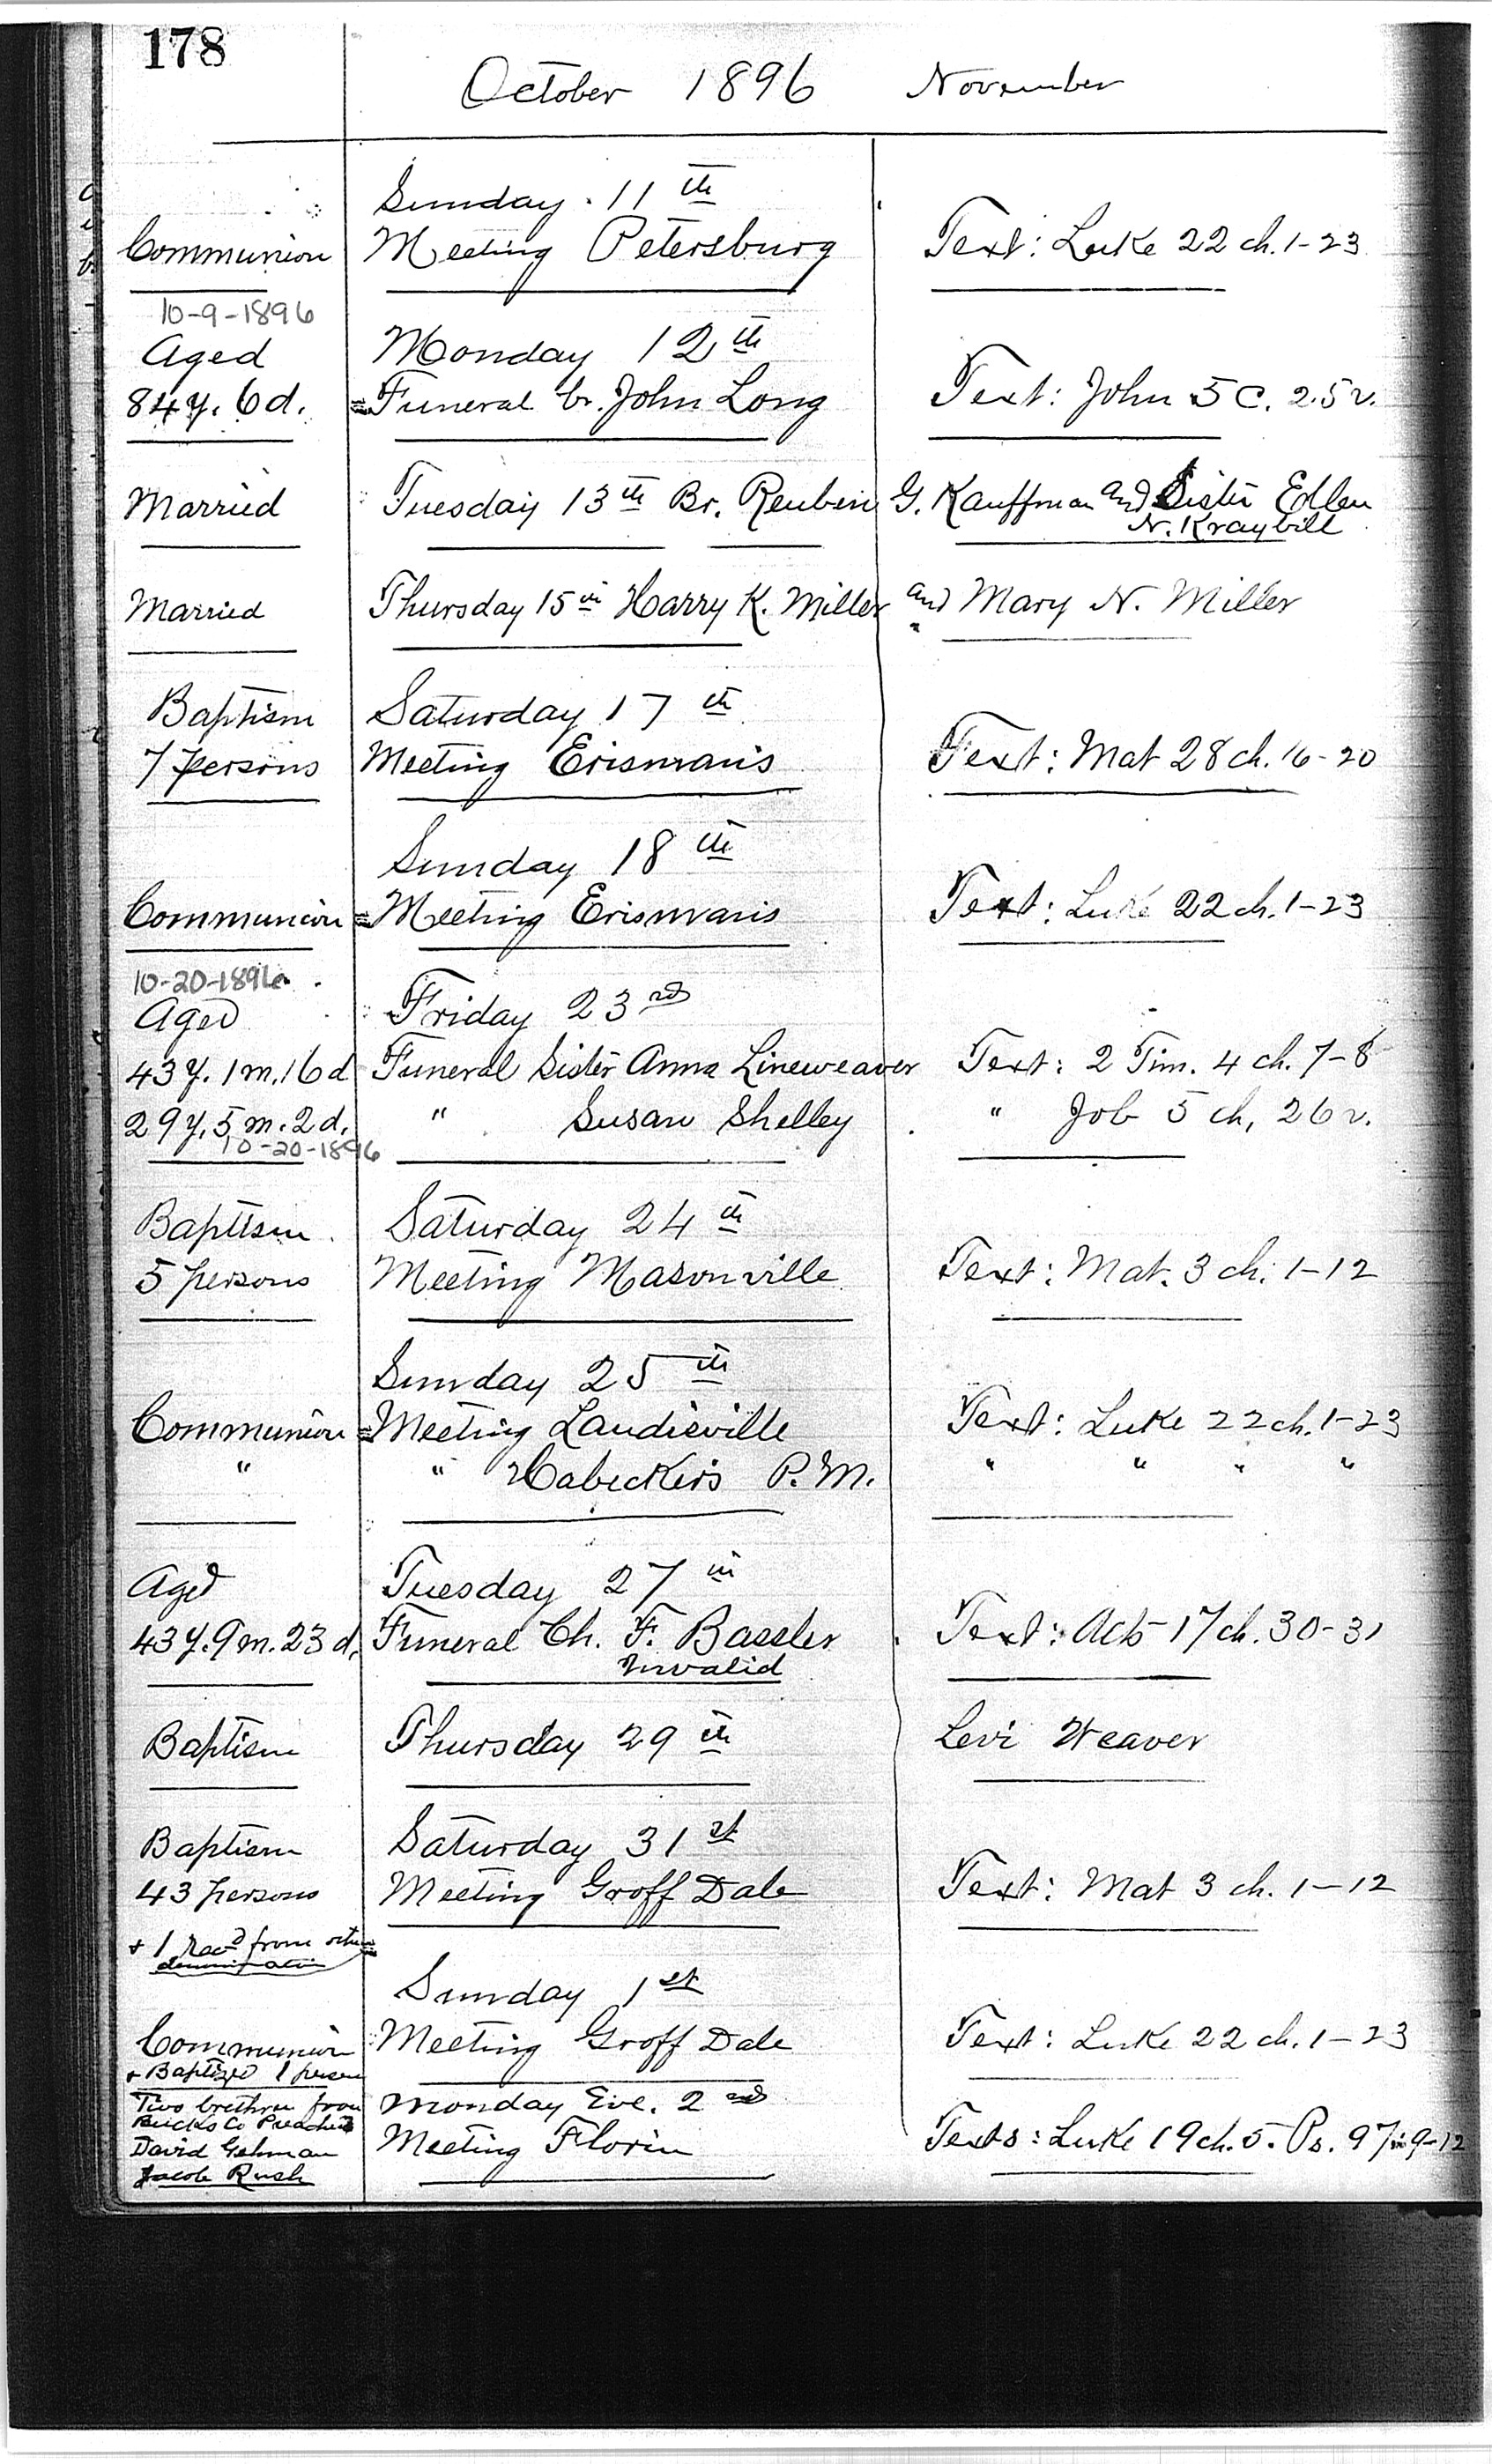 178
October 1896 November
Sunday 11th
Communion Meeting Petersburg Text: Luke 22 ch. 1-23
10-9-1896
Aged Monday 12th
84 y. 6 d. Funeral br. John Long Text: John 5 C. 25 v.
Married Tuesday 13th Br. Reuben G. Kauffman and Sister Ellen
N. Kraybill
Married Thursday 15th Harry K. Miller and Mary N. Miller
Baptism Saturday 17th
7 persons Meeting Erisman's Text: Mat 28 ch. 16-20
Sunday 18th
Communion = Meeting Erisman's Text: Luke 22 ch. 1-23
10-20-1896
Aged Friday 23rd
43 y. 1 m. 16 d Funeral Sister Anna Lineweaver Text: 2 Tim. 4 ch. 7-8
29 y. 5 m. 2 d. " Susan Shelley " Job 5 ch, 26 v.
10-20-1896
Baptism Saturday 24th
5 persons Meeting Masonville Text: Mat. 3 ch. 1-12
Sunday 25th
Communion = Meeting Landisville Text: Luke 22 ch. 1-23
" " Habecker's P.M. " " " "
Aged Tuesday 27th
43 y. 9 m. 23 d. Funeral Ch. F. Bassler Text: Acts 17 ch. 30-31
Invalid
Baptism Thursday 29th Levi Weaver
Baptism Saturday 31st
43 persons Meeting Groff Dale Text: Mat 3 ch. 1-12
+ 1 Recd from other
denomination
Sunday 1st
Communion Meeting Groff Dale Text: Luke 22 ch. 1-23
+ Baptized 1 person
Two brethren from Monday Eve. 2nd
Bucks Co Preached Meeting Florin Texts: Luke 19 ch. 5. Ps. 97 9-12
David Gehman
Jacob Rush